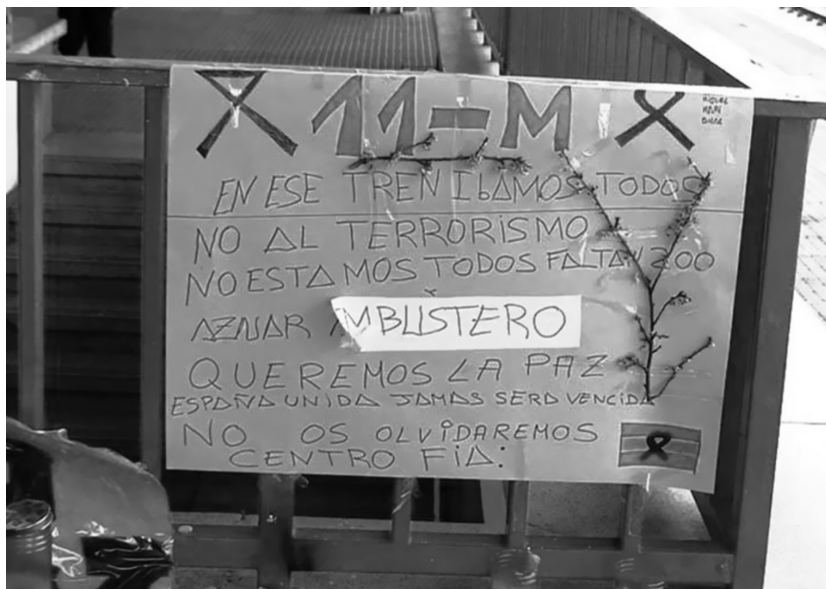 11-M
EN ESE TREN IbAMOS TODOS
NO AL TERRORISMO
NO ESTAMOS TODOS FALTAN 200
AZNAR EMBUSTERO
QUEREMOS LA PAZ
ESPAÑA UNIDA JAMAS SERA VENCIDA
NO OS OLVIDAREMOS
CENTRO FIA: